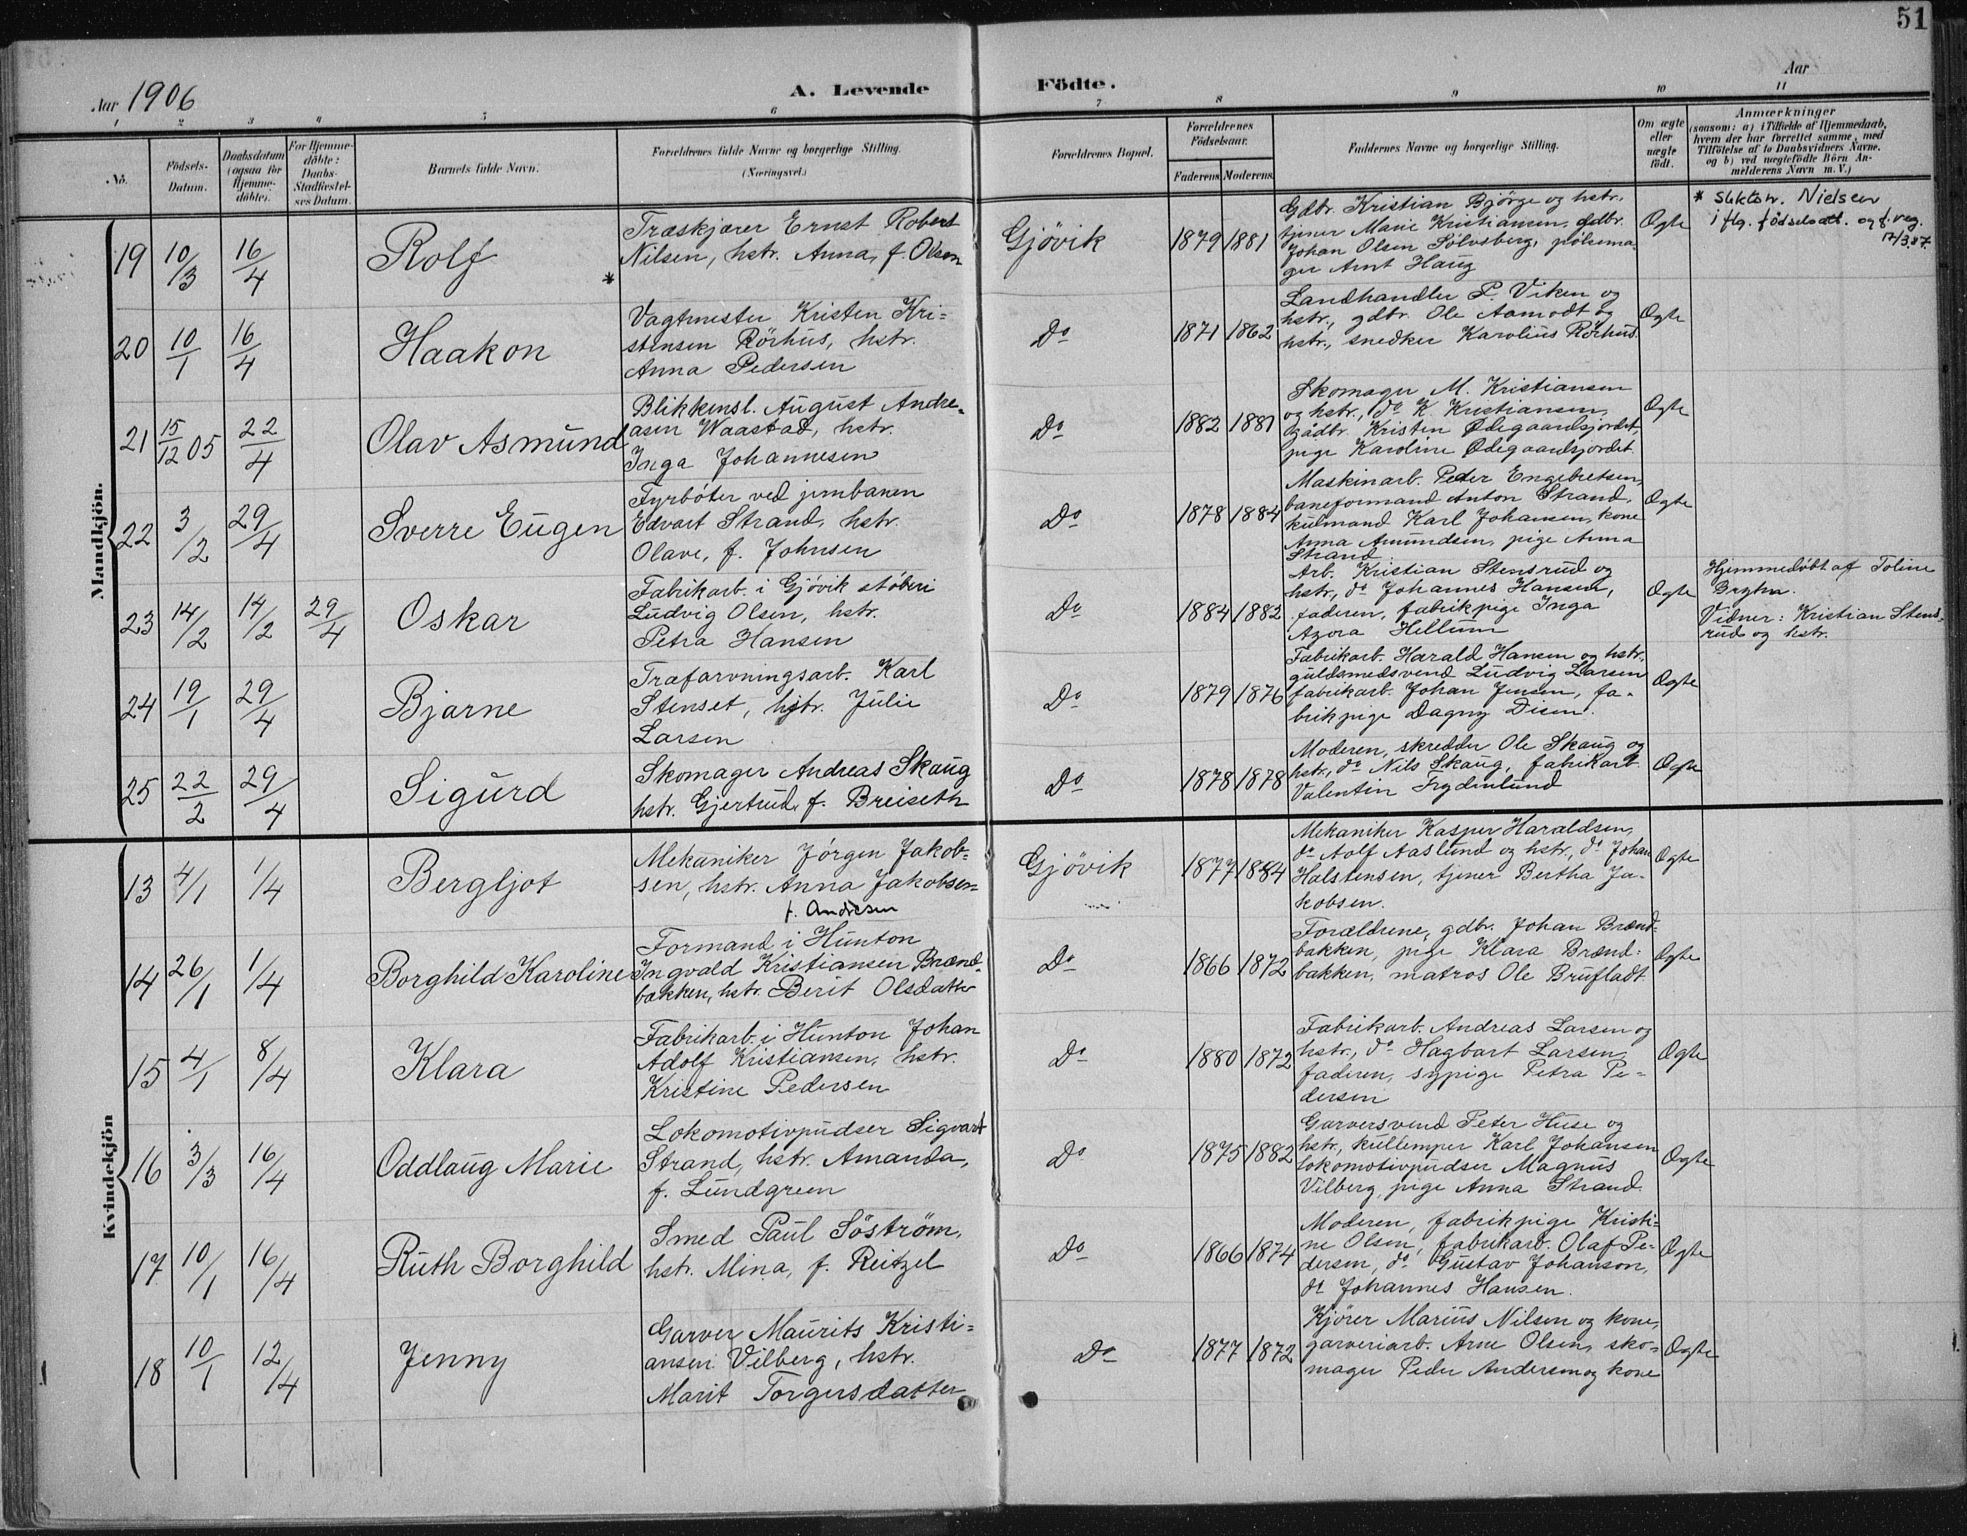 51
Aar 1906
A. Levende Födte.
Aar
1 2 3 4 5 6 7 8 9 10 11
No.
Födsels-
Datum.
Daabsdatum
(ogsaa for
Hjemme-
döbte).
For Hjemme-
döbte:
Daabs-
Stadfæstel-
ses Datum.
Barnets fulde Navn.
Forældrenes fulde Navne og borgerlige Stilling.
(Næringsvei.)
Forældrenes Bopæl.
Forældrenes
Födselsaar.
Faderens. Moderens.
Faddernes Navne og borgerlige Stilling.
Om ægte
eller
uægte
født.
Anmærkninger
(saasom: a) i Tilfælde af Hjemmedaab,
hvem der har forrettet samme, med
Tilföielse af to Daabsvidners Navne,
og b) ved uægtefödte Börn An-
melderens Navn m. V.)
Mandkjön.
19 10/3 16/4 Rolf *
Træskjærer Ernst Robert
Nilsen, hstr. Anna, f. Olsen
Gjövik 1879 1881
Gdbr. Kristian Bjørge og hstr.,
tjener Marie Kristiansen, gdbr.
Johan Olsen Sølvsberg, pølsema-
ger Arnt Haug
Ægte
* Slektsn. Nielsen
iflg. födselsatt. og f.reg.
17/3.87.
20 10/1 16/4 Haakon
Vagtmester Kristen Kri-
stensen Rörhus, hstr.
Anna Pedersen
Do 1871 1862
Landhandler P. Viken og
hstr., gdbr. Ole Aamodt og
hstr., snedker Karolius Rørhus.
Ægte
21 15/12 05 22/4 Olav Asmund
Blikkensl. August Andre-
asen Waastad, hstr.
Inga Johannesen
Do 1882 1881
Skomager M. Kristiansen
og hstr., do K. Kristiansen,
gådbr. Kristen Ødegaardsjordet,
pige Karoline Ødegaardsjordet
Ægte
22 3/2 29/4 Sverre Eugen
Fyrbóter ved jernbanen
Edvart Strand, hstr.
Olave, f. Johnsen
Do 1878 1884
Maskinarb. Peder Engebretsen,
baneformand Anton Strand,
kulmand Karl Johansen, kone
Anna Amundsen, pige Anna
Strand
Ægte
23 14/2 14/2 29/4 Oskar
Fabrikarb. i Gjövik støberi
Ludvig Olsen, hstr.
Petra Hansen
Do 1884 1882
Arb. Kristian Stensrud og
hstr., do Johannes Hansen,
faderen, fabrikpige Inga
Azora Hellum
Ægte
Hjemmedøbt af Toline
Vidner: Kristian Stens-
rud og hstr.
24 19/1 29/4 Bjarne
Trafarvningsarb. Karl
Stenset, hstr. Julie
Larsen
Do 1879 1876
Fabrikarb. Harald Hansen og hstr.,
guldsmedsvend Ludvig Larsen
fabrikarb. Johan Jensen, fa-
brikpige Dagny Disen.
Ægte
25 22/2 29/4 Sigurd
Skomager Andreas Skaug
hstr. Gjertrud, f. Breiseth
Do 1878 1878
Moderen, skredder Ole Skaug og
hstr., do Nils Skaug, fabrikarb.
Valentin Frydenlund
Ægte
Kvindekjön
13 4/1 1/4 Bergljot
Mekaniker Jörgen Jakob-
sen, hstr. Anna Jakobsen
f. Andresen
Gjövik 1877 1884
Mekaniker Kasper Haraldsen,
do Adolf Aaslund og hstr., do Johan
Halstensen, tjener Bertha Ja-
kobsen.
Ægte
14 26/1 1/4 Borghild Karoline
Formand i Hunton
Ingvald Kristiansen Brænd-
bakken, hstr. Berit Olsdatter
Do 1866 1872
Forældrene, gdbr. Johan Brænd-
bakken, pige Klara Brænd-
bakken, matros Ole Brufladt.
Ægte
15 4/1 8/4 Klara
Fabrikarb. i Hunton Johan
Adolf Kristiansen, hstr.
Kristine Pedersen
Do 1880 1872
Fabrikarb. Andreas Larsen og
hstr., do Hagbart Larsen,
faderen, sypige Petra Pe-
dersen
Ægte
16 3/3 16/4 Oddlaug Marie
Lokomotivpudser Sigvart
Strand, hstr. Amanda,
f. Lundgreen
Do 1875 1882
Garversvend Peter Huse og
hstr., kullemper Karl Johansen
lokomotivpudser Magnus
Vilberg, pige Anna Strand
Ægte
17 10/1 16/4 Ruth Borghild
Smed Paul Söström,
hstr. Mina, f. Reitzel
Do 1866 1874
Moderen, fabrikpige Kristi-
ne Olsen, fabrikarb. Olaf Pe-
dersen, do Gustav Johanson,
do Johannes Hansen.
Ægte
18 10/1 12/4 Jenny
Garver Maurits Kristi-
ansen Vilberg, hstr.
Marit Torgersdatter
Do 1877 1872
Kjører Marius Nilsen og kone,
garveriarb. Arne Olsen, sko-
mager Peder Andersen og kone
Ægte